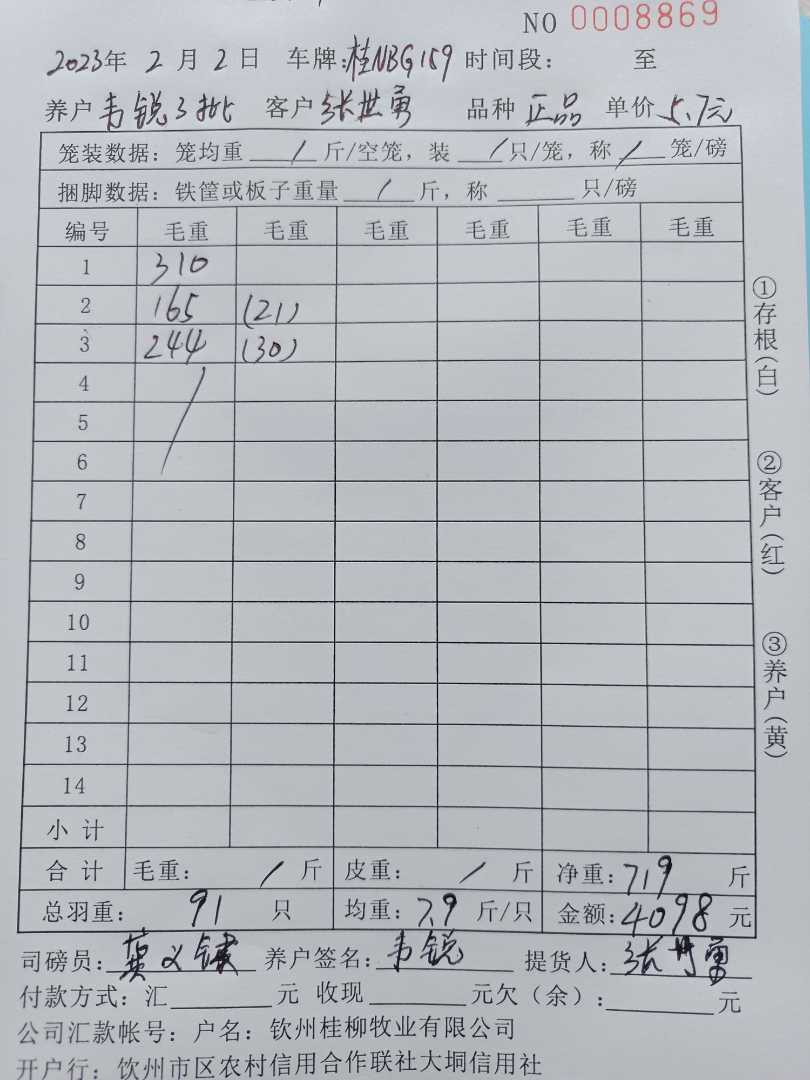 NO 0008869
2023年 2 月 2 日 车牌:桂NBG159 时间段: 至
养户 韦锐3批 客户 张世勇 品种 正品 单价 5.7元
笼装数据: 笼均重 / 斤/空笼, 装 / 只/笼, 称 / 笼/磅
捆脚数据: 铁筐或板子重量 / 斤, 称 只/磅
编号 毛重 毛重 毛重 毛重 毛重 毛重
1 310
2 165 (21)
3 244 (30)
4
5
6
7
8
9
10
11
12
13
14
小 计
合 计 毛重: / 斤 皮重: / 斤 净重: 719 斤
总羽重: 91 只 均重: 7.9 斤/只 金额: 4098 元
司磅员: 养户签名: 韦锐 提货人: 张世勇
付款方式: 汇 元 收现 元欠(余): 元
公司汇款帐号: 户名: 钦州桂柳牧业有限公司
开户行: 钦州市区农村信用合作联社大垌信用社
①存根(白)
②客户(红)
③养户(黄)